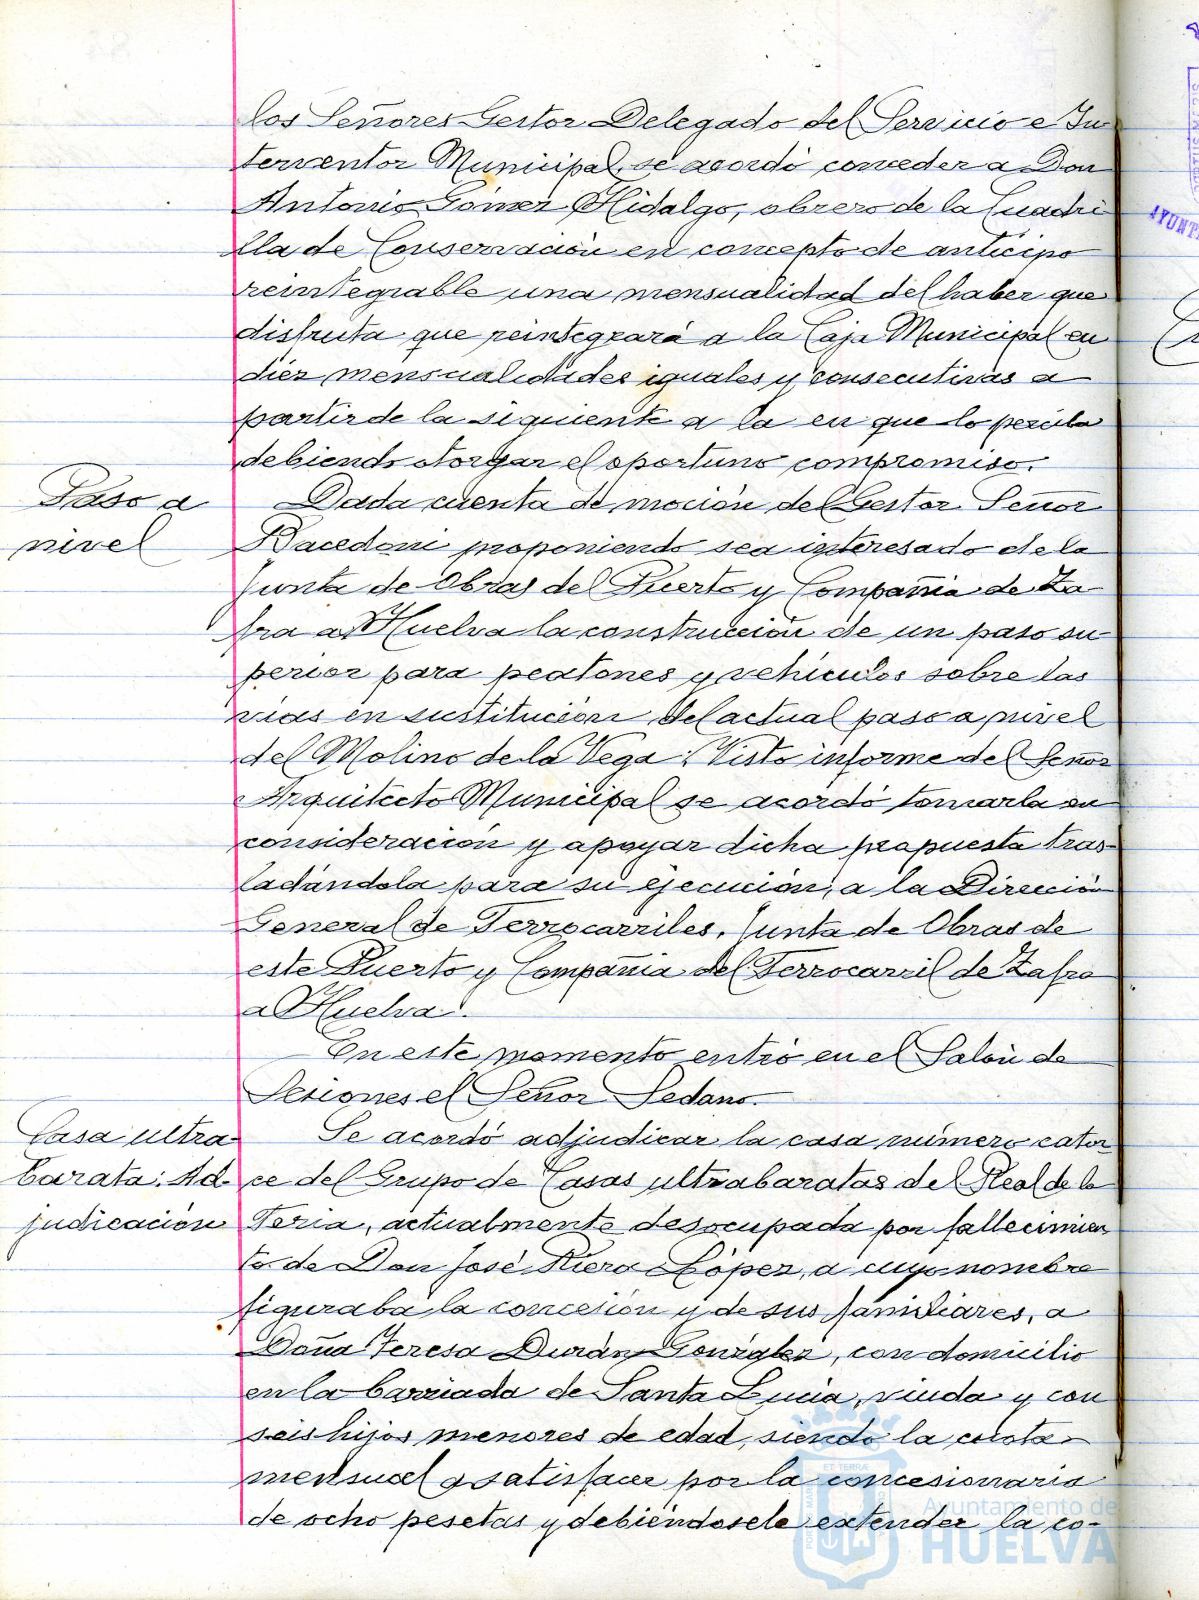 los Señores Gestor Delegado del Servicio e In-
terventor Municipal, se acordó conceder a Don
Antonio Gómez Hidalgo, obrero de la Cuadri
lla de Conservación en concepto de anticipo
reintegrable una mensualidad del haber que
disfruta que reintegrará a la Caja Municipal en
diez mensualidades iguales y consecutivas a
partir de la siguiente a la en que lo perciba
debiendo otorgar el oportuno compromiso.
Paso a
nivel
Dada cuenta de moción del Gestor Señor
proponiendo sea interesado de la
Junta de Obras del Puerto y Compañia de Za
fra a Huelva la construcción de un paso su-
perior para peatones y vehículos sobre las
vias en sustitución del actual paso a nivel
del Molino de la Vega: Visto informe del Señor
Arquitecto Municipal se acordó tomarla en
consideración y apoyar dicha propuesta tras-
ladándola para su ejecución, a la Dirección
General de Ferrocarriles, Junta de Obras de
este Puerto y Compañia del Ferrocarril de Zafra
a Huelva.
En este momento entró en el Salón de
Sesiones el Señor Sedano.
Casa ultra-
barata: Ad-
judicación
Se acordó adjudicar la casa número cator
ce del Grupo de Casas ultrabaratas del Real de la
Feria, actualmente desocupada por fallecimien
to de Don José Riera López, a cuyo nombre
figuraba la concesión y de sus familiares, a
Doña Teresa Durán González, con domicilio
en la barriada de Santa Lucia, viuda y con
seis hijos menores de edad, siendo la cuota
mensual a satisfacer por la concesionaria
de ocho pesetas y debiéndosele extender la co-
Ayuntamiento de
HUELVA